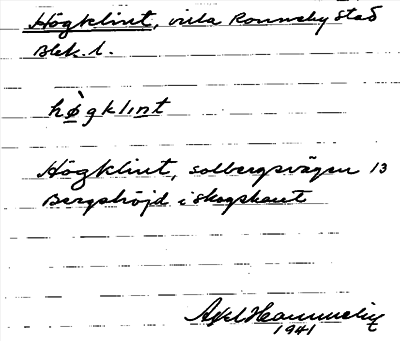 Högklint, villa Ronneby stad
Blek. l.
hø̀gklınt
Högklint, solbergsvägen 13
Bergshöjd i skogskant
Axel Hammelig
1941